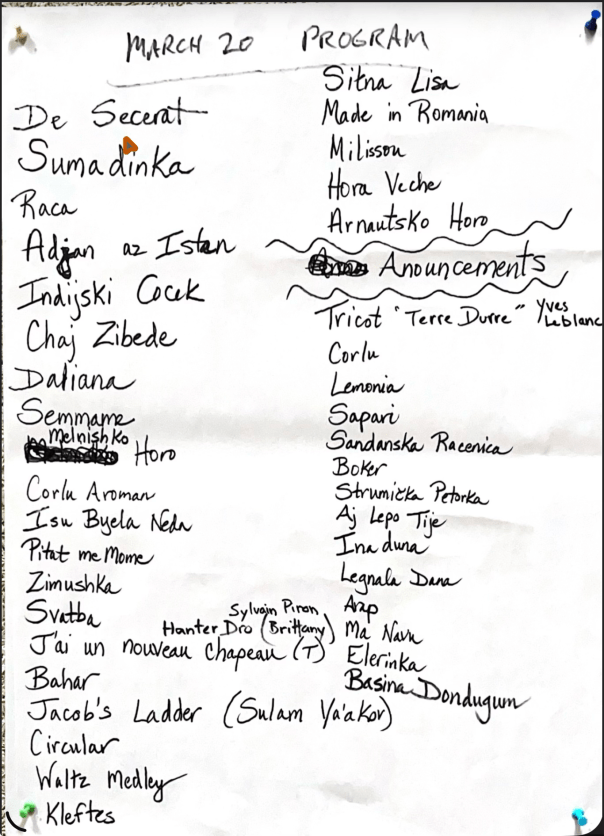 MARCH 20 PROGRAM
De Secerat
Sumadinka
Raca
Adjan az Istan
Indijski Cocek
Chaj Zibede
Daliana
Semmame
Melnishko
Horo
Corlu Aroman
Isu Byela Neda
Pitat me Mome
Zimushka
Svatba
Sylvain Piron
Hanter Dro (Brittany)
J'ai un nouveau chapeau (T)
Bahar
Jacob's Ladder (Sulam Ya'akov)
Circular
Waltz Medley
Kleftes
Sitna Lisa
Made in Romania
Milisson
Hora Veche
Arnautsko Horo
Anouncements
Tricot "Terre Durre" Yves
Leblanc
Corlu
Lemonia
Sapari
Sandanska Racenica
Boker
Strumička Petorka
Aj Lepo Tije
Ina duna
Legnala Dana
Arap
Ma Navu
Elerinka
Basina Dondugum